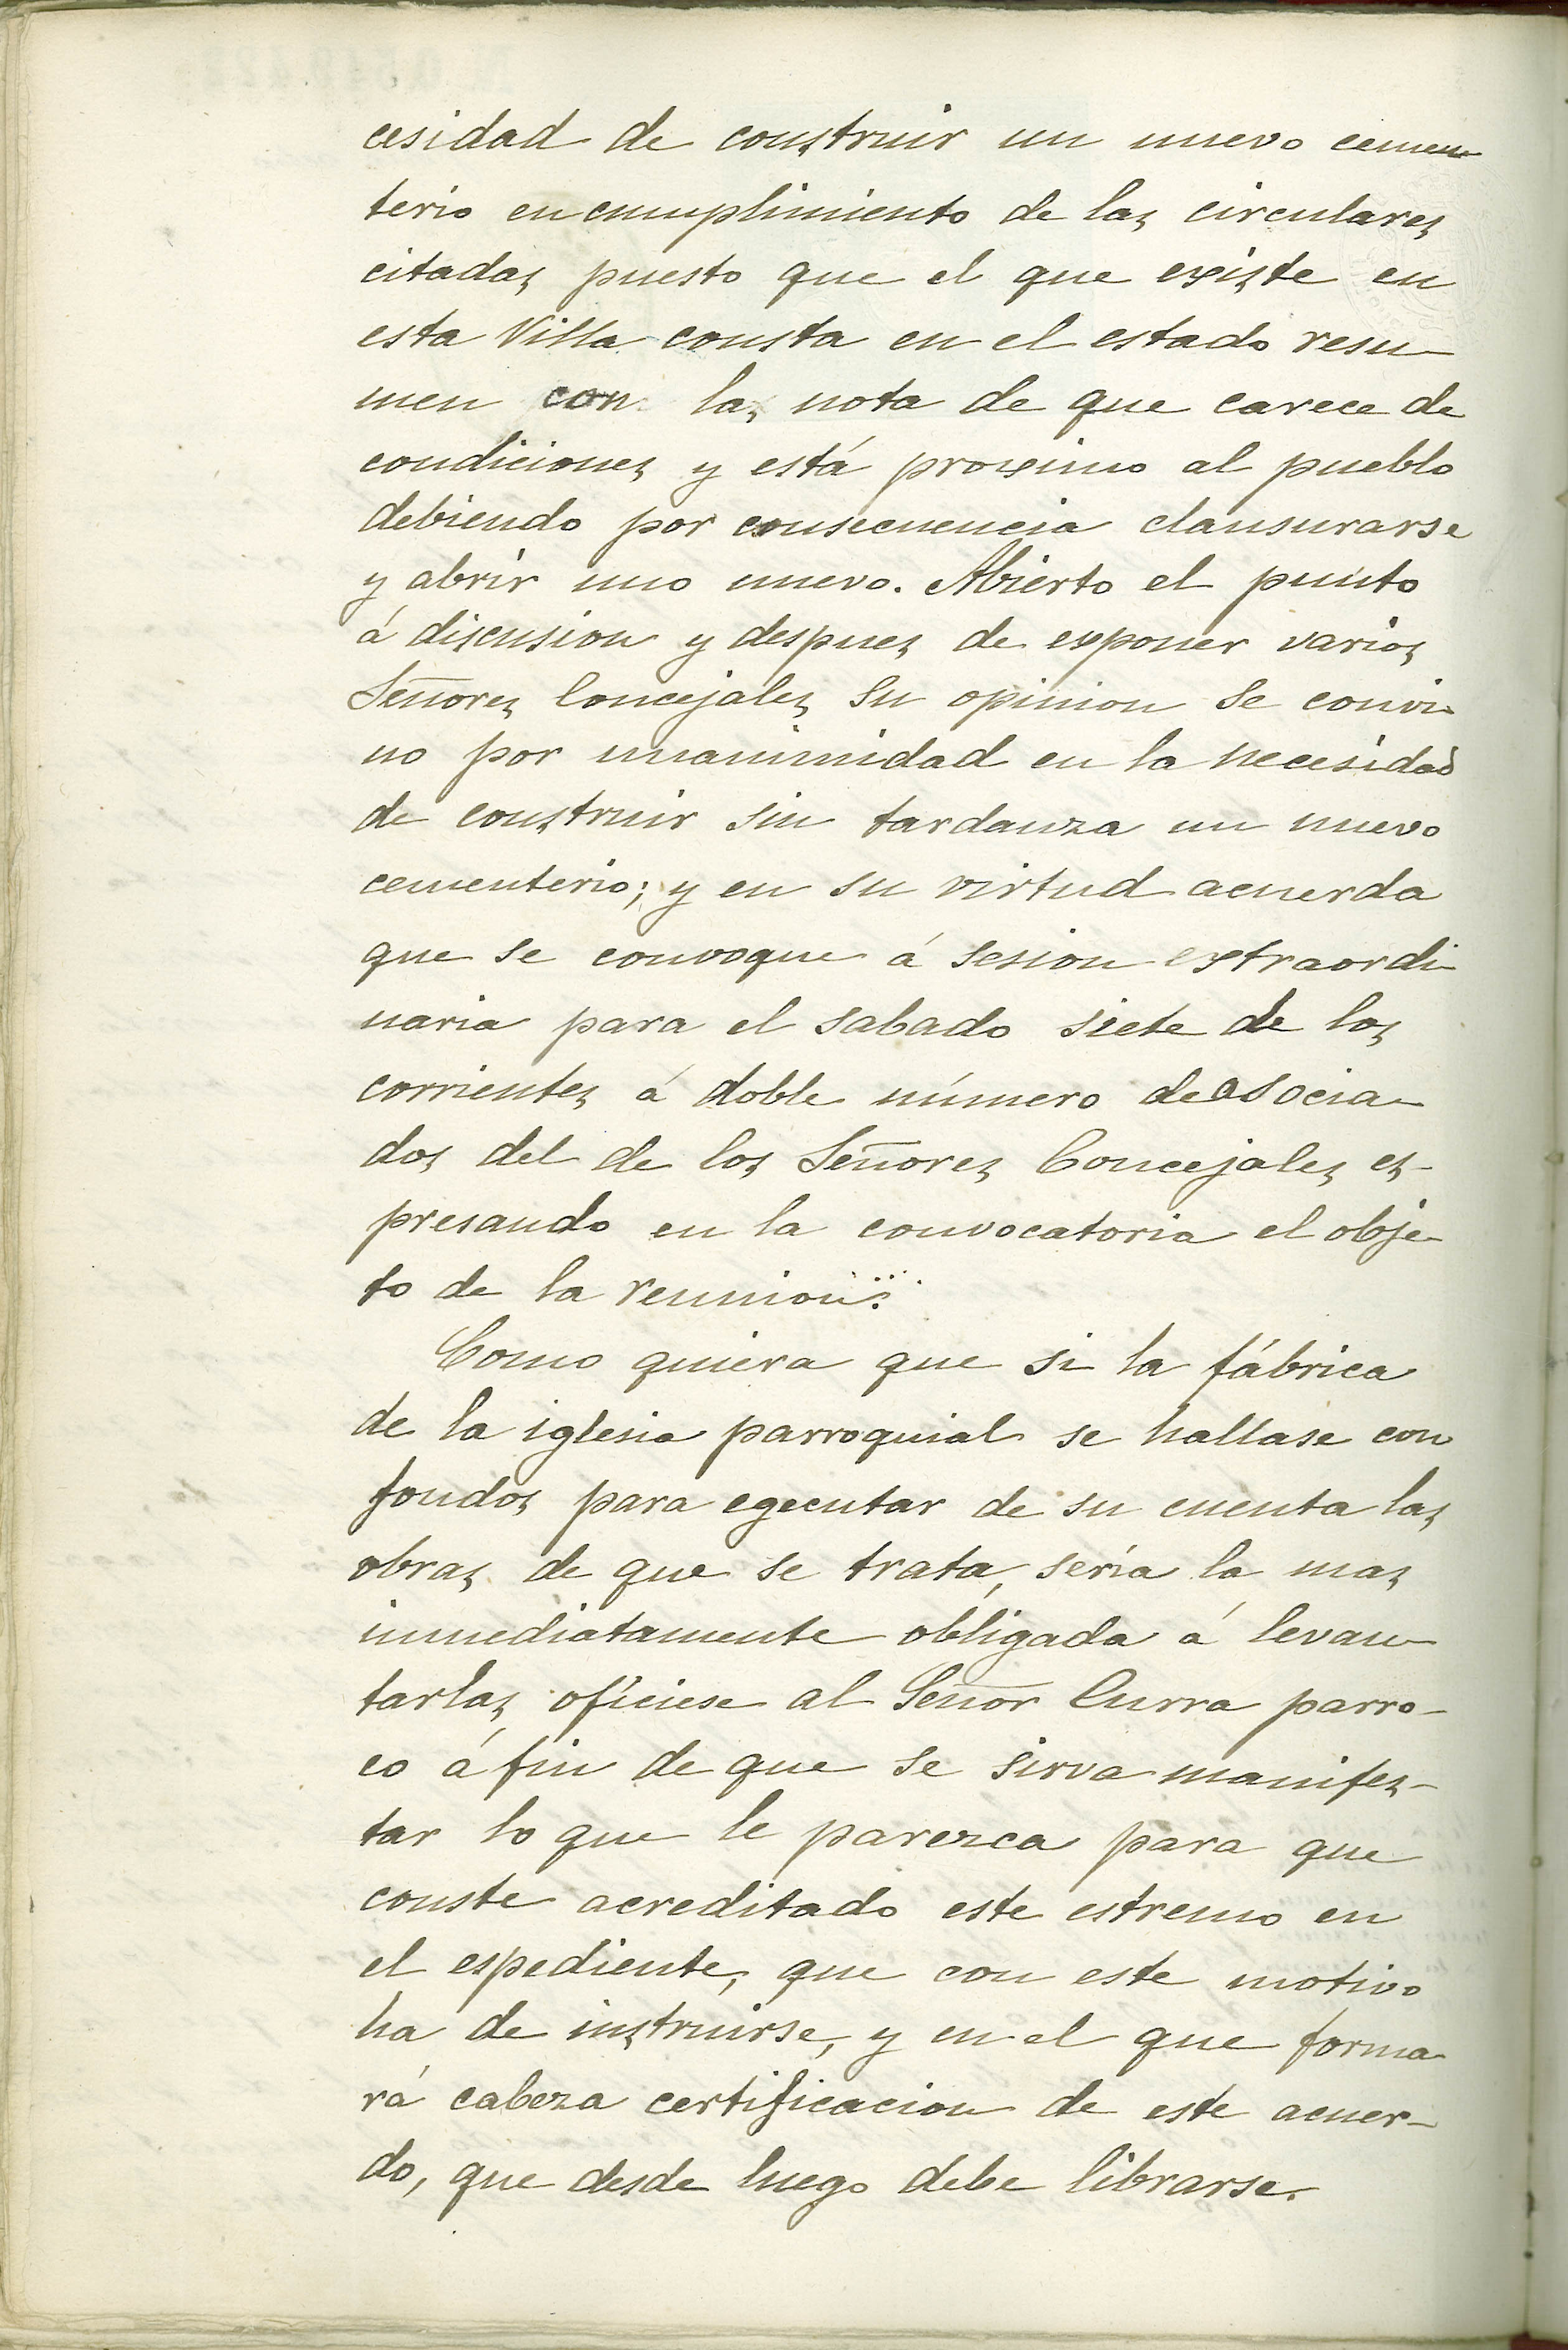 cesidad de construir un nuevo cemen-
terio en cumplimiento de las circulares
citadas puesto que el que existe en
esta Villa consta en el estado resu-
men con las nota de que carece de
condiciones y está proximo al pueblo
debiendo por consecuencia clausurarse
y abrir uno nuevo. Abierto el punto
á discusion y despues de exponer varios
Señores Concejales su opinion se convi-
no por unanimidad en la necesidad
de construir sin tardanza un nuevo
cementerio; y en su virtud acuerda
que se convoque á sesion extraordi-
naria para el sabado siete de los
corrientes á doble número de asocia-
dos del de los Señores Concejales es-
presando en la convocatoria el obje-
to de la reunion.
Como quiera que si la fábrica
de la iglesia parroquial se hallase con
fondos para egecutar de su cuenta las
obras de que se trata, sería la mas
inmediatamente obligada á levan-
tarlas ofíciese al Señor Curra parro-
co á fin de que se sirva manifes-
tar lo que le parezca para que
conste acreditado este estremo en
el espediente, que con este motivo
ha de instruirse, y en el que forma-
rá cabeza certificacion de este acuer-
do, que desde luego debe librarse.